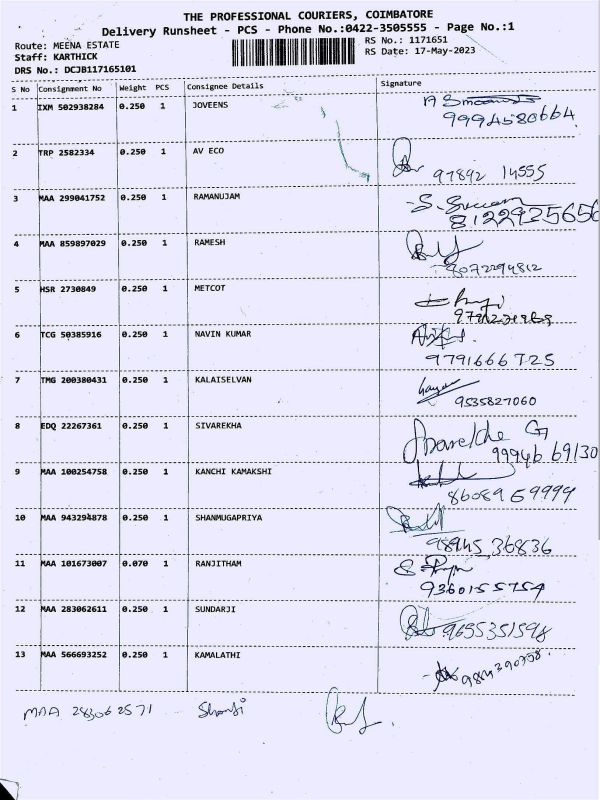 THE PROFESSIONAL COURIERS, COIMBATORE
Delivery Runsheet - PCS - Phone No.:0422-3505555 - Page No.:1
Route: MEENA ESTATE
RS No.: 1171651
Staff: KARTHICK
RS Date: 17-May-2023
DRS No.: DCJB117165101
S No Consignment No Weight PCS Consignee Details Signature
1 IXM 502938284 0.250 1 JOVEENS
9994580664
2 TRP 2582334 0.250 1 AV ECO
97892 14555
3 MAA 299041752 0.250 1 RAMANUJAM
8122925656
4 MAA 859897029 0.250 1 RAMESH
5 HSR 2730849 0.250 1 METCOT
6 TCG 50385916 0.250 1 NAVIN KUMAR
9791666725
7 TMG 200380431 0.250 1 KALAISELVAN
9535827060
8 EDQ 22267361 0.250 1 SIVAREKHA
99946 69130
9 MAA 100254758 0.250 1 KANCHI KAMAKSHI
8608969999
10 MAA 943294878 0.250 1 SHANMUGAPRIYA
98945 36836
11 MAA 101673007 0.070 1 RANJITHAM
9360155754
12 MAA 283062611 0.250 1 SUNDARJI
9655351598
13 MAA 566693252 0.250 1 KAMALATHI
MAA 283062571